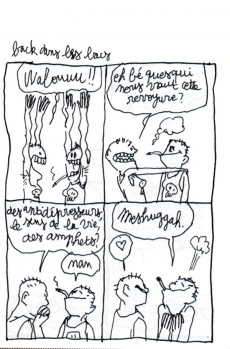 back dans les bacs
Nalouuu!!
eh bé quesqui
nous vaut cette
revoyure?
des antidépresseurs,
le sens de la vie,
des amphets!
nan
Meshuggah.